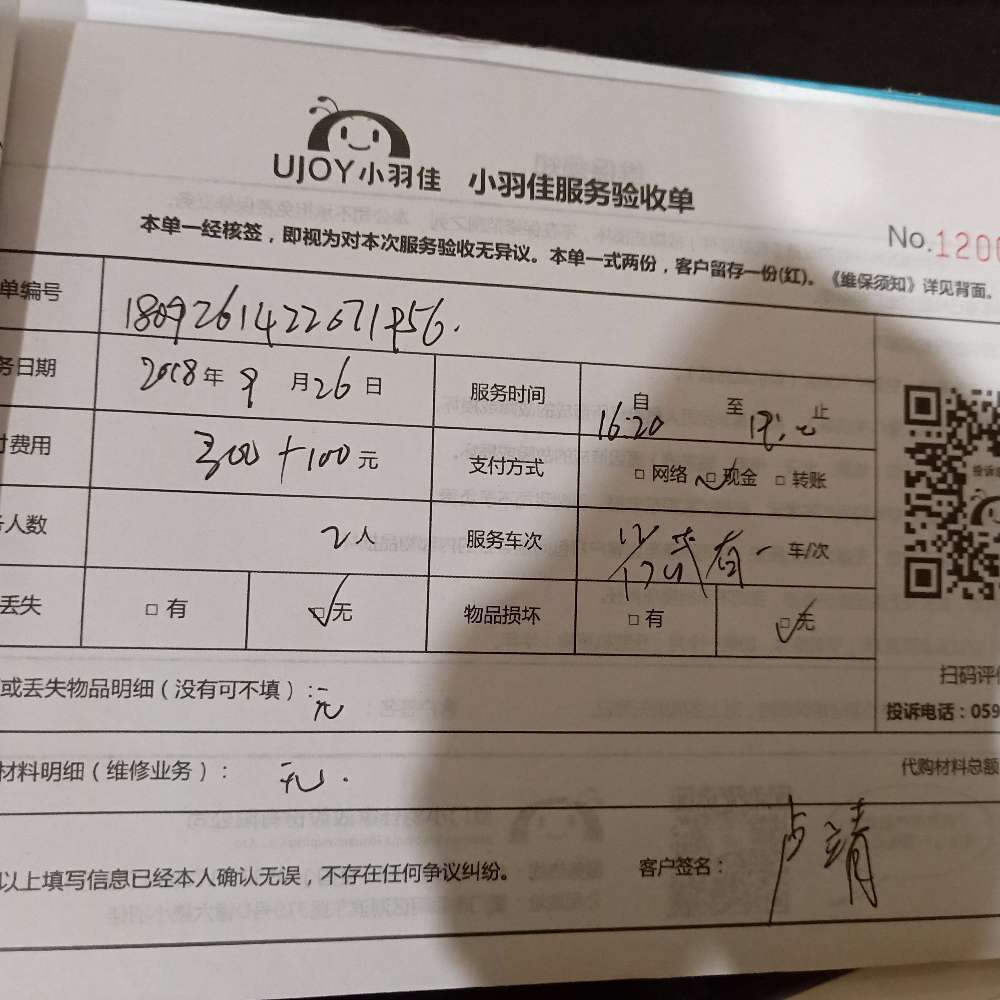 UJOY小羽佳 小羽佳服务验收单
本单一经核签，即视为对本次服务验收无异议。本单一式两份，客户留存一份(红)。《维保须知》详见背面。
No.1200
单编号 1809261422671956.
务日期 2018年9月26日 服务时间 自16:20至 止
付费用 300+100元 支付方式 □网络 □现金 □转账
务人数 2人 服务车次 车/次
丢失 □有 □无 物品损坏 □有 □无
扫码评价
或丢失物品明细（没有可不填）：无
投诉电话：059
材料明细（维修业务）：无.
代购材料总额
以上填写信息已经本人确认无误，不存在任何争议纠纷。 客户签名：卢靖